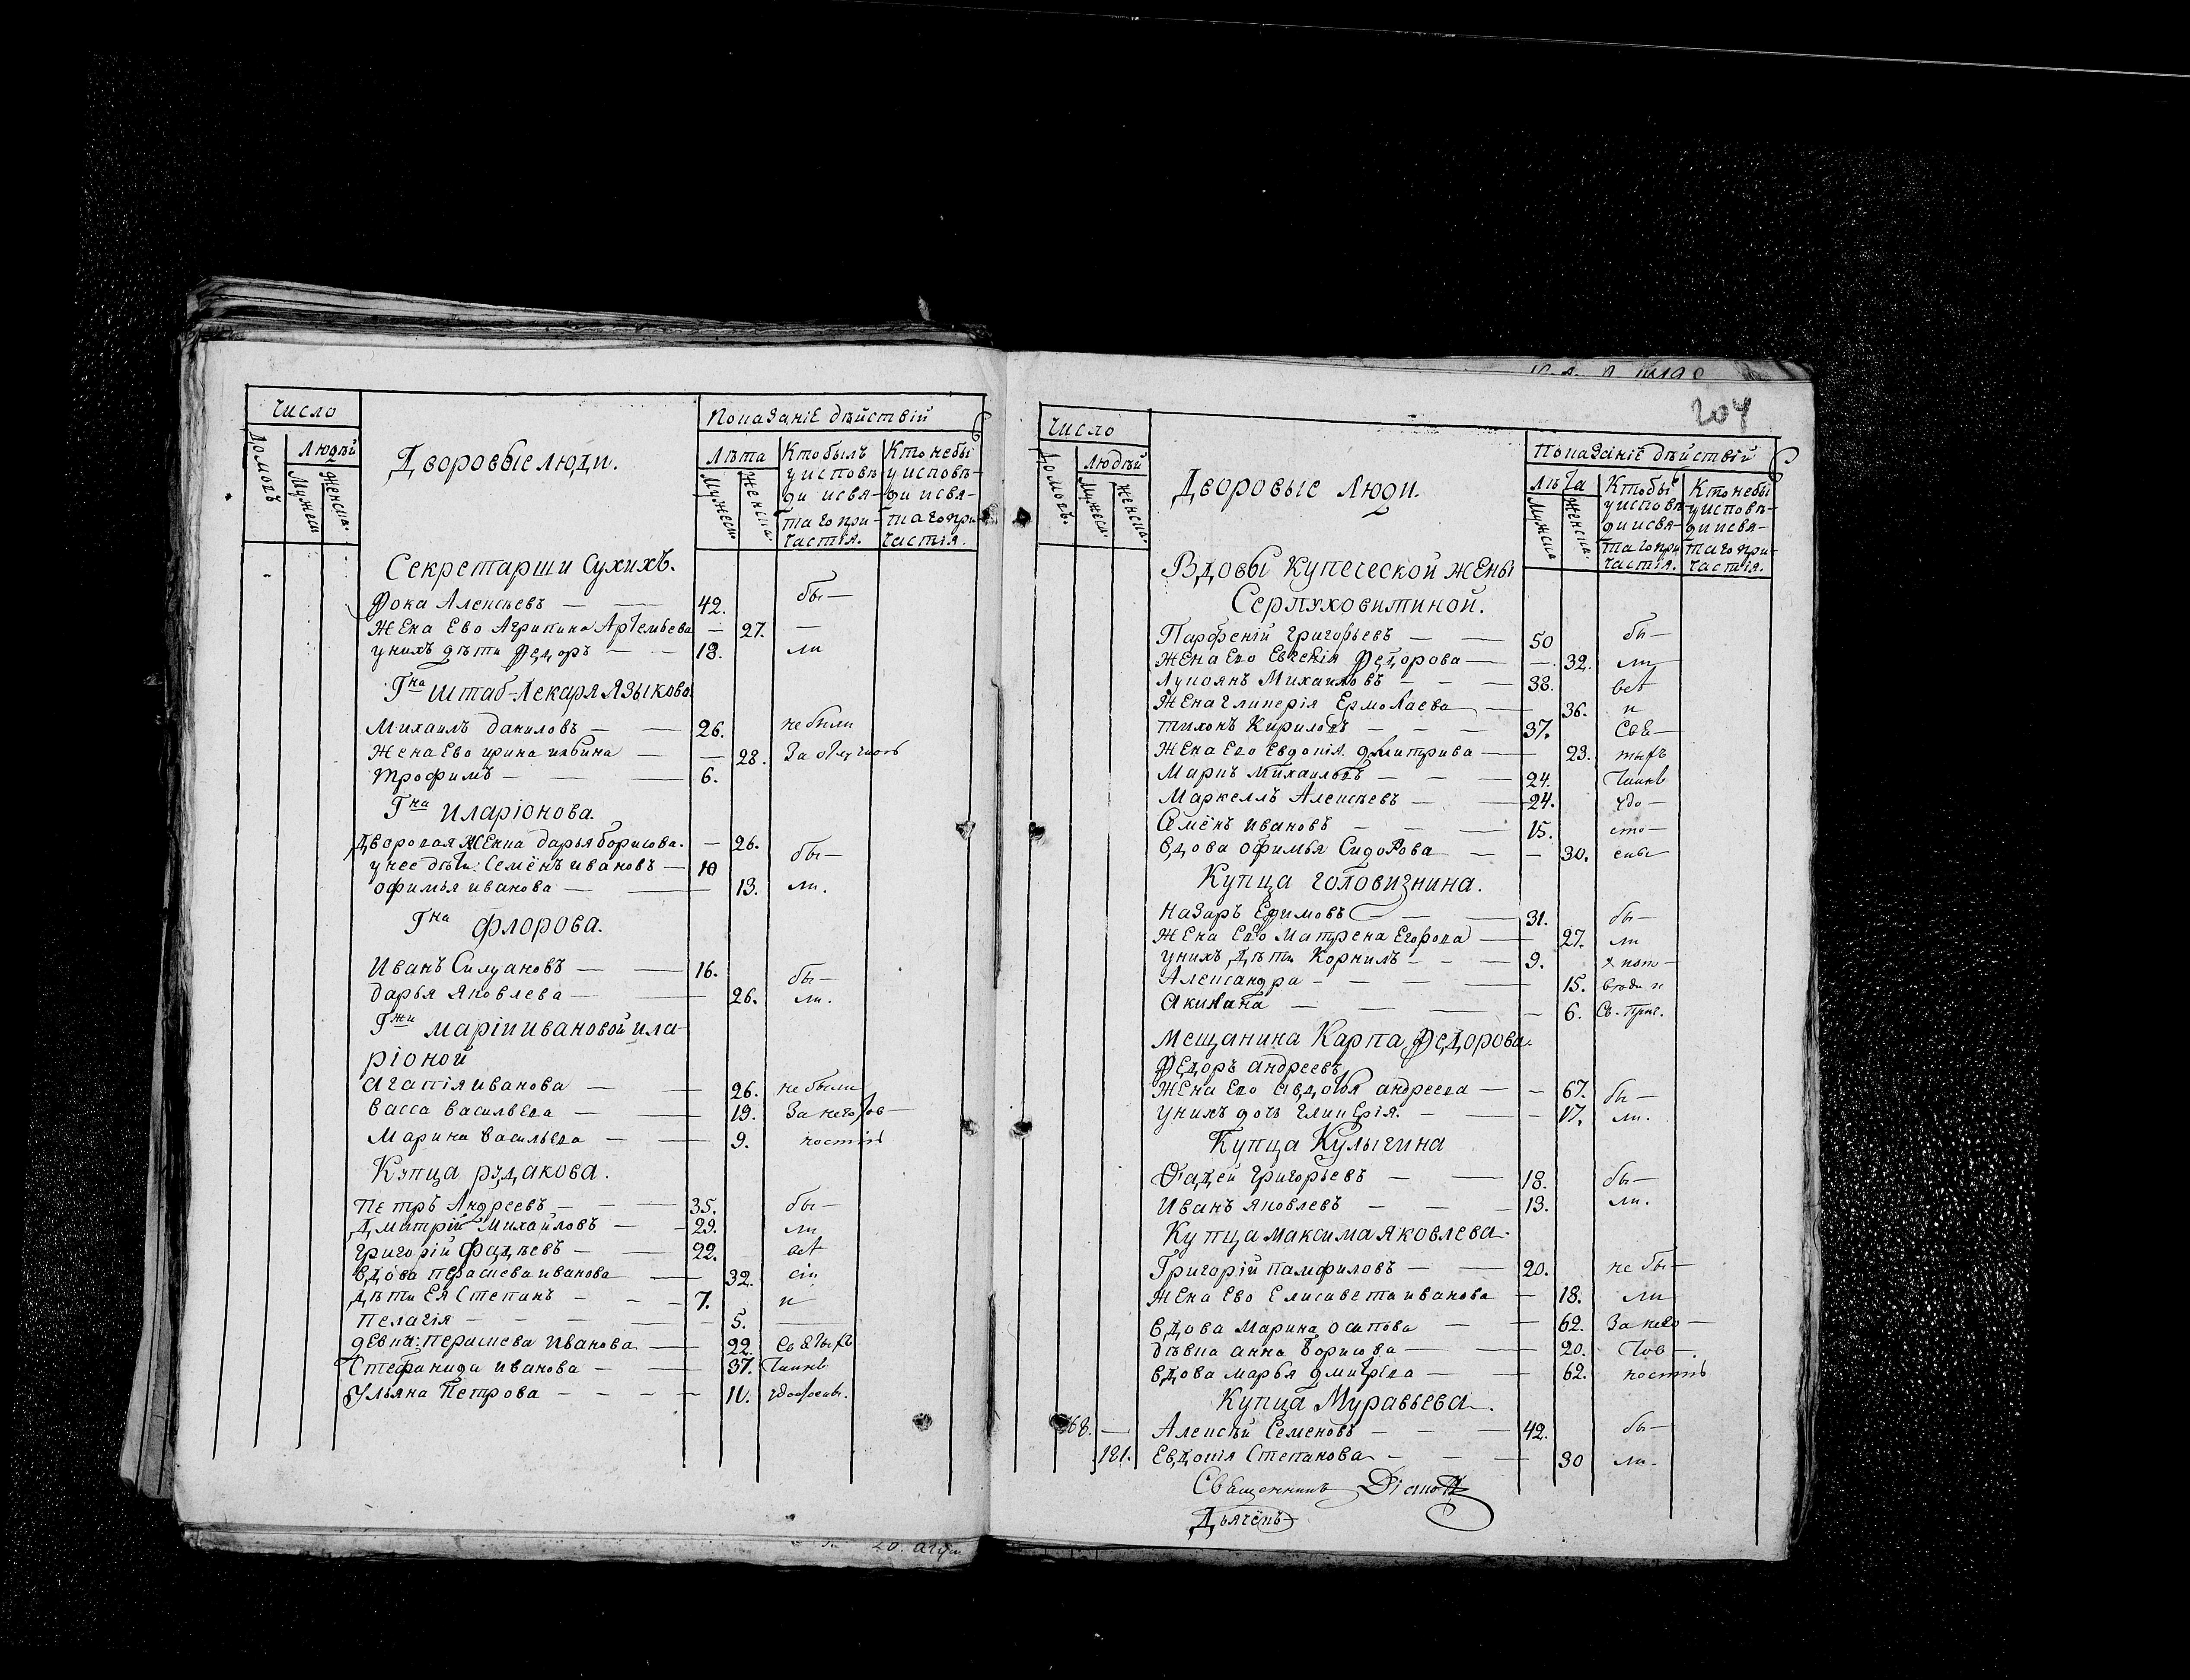 Число
Показаніе дѣйствій
Домовъ
Людѣй
Мужеск
Женска.
Дворовые люди.
Лѣта
Мужеск
Женска.
Кто былъ у исповѣди и святаго причастія.
Кто небы у исповѣди и святаго причастія.
Секретарши Сухихъ.
Фока Алексѣевъ — — 42. бы—
Жена Ево Агрипина Артемьева — 27. —
у нихъ дѣти Федоръ — — 18. ли
Гна штаб-Лекаря Языкова
Михаилъ Даниловъ — — 26. не были
Жена Ево ирина ильина — — 28. За
трофимъ — — — 6.
Гна иларіонова.
Дворовая Женка дарья борисова. — 26.
у нее дѣти: Семёнъ ивановъ — 10 бы—
офимья иванова — — 13. ли.
Гна флорова.
Иванъ Силуановъ — — 16. бы—
дарья Яковлева — — 26. ли.
Гжи маріи ивановой ила-
ріоной
агапія иванова — — 26. не были
васса васильева — — 19. За него тов—
Марина васильева — — 9. ностію
Купца рудакова.
Петръ Андреевъ — — — 35. бы—
Дмитрій Михайловъ — — 29. ли
григорій фадѣевъ — — 22.
вдова параскева иванова — 32.
Дѣти Ея Степанъ — — — 7. и
пелагія — — — — — 5.
девка: параскева Иванова — 22. святыхъ
Стефанида иванова — — 37. Таинъ
Ульяна Петрова — — — — 11.
204
Число
Показаніе дѣйствій
Домовъ.
Людѣй
Мужеск.
Женска.
Дворовые Люди.
Лѣта
Мужеска
Женска.
Кто бы у исповѣди и святаго при частія.
Кто небы у исповѣди и святаго причастія.
Вдовы Купеческой жены
Серпуховитиной.
Парфеній григорьевъ — — 50 бы—
Жена Его Евгенія Федорова — — 32. ли
Лукоянъ Михаиловъ — — — 38.
Жена глицерія Ермолаева — — 36. и
тихонъ Кириловъ — — — 37. Свя—
Жена Его Евдокія дмитриева — 23. тыхъ
Маркъ Михаиловъ — — — 24. Таинъ
Маркеллъ Алексѣевъ — — 24. удо—
Семёнъ ивановъ — — — 15. сто—
вдова офимья Сидорова — — 30.
Купца головизнина.
Назаръ Ефимовъ — — — 31. бы—
Жена Его Матрена Егорова — 27. ли
у нихъ Дѣти Корнилъ — — — 9.
Александра — — — — 15.
Акилина — — — — 6. Св. Прич.
мещанина Карпа Федорова.
Федоръ андреевъ
Жена Его Авдотья андреева — — 67. бы—
у нихъ дочь глицерія. — — 17. ли.
Купца Кулыгина
Фадей григорьевъ — — 18. бы—
Иванъ яковлевъ — — — 13. ли.
Купца максима яковлева.
Григорій памфиловъ — — 20. не бы—
Жена Ево Елисавета иванова — 18. ли
вдова марина осипова — — 62. За него—
дѣвка анна борисова — — 20. тов—
вдова марья дмитріева — — 62. ностію
Купца Муравьева.
168. — Алексѣй Семеновъ — — — 42. бы—
181. Евдокія Степанова — — — 30 ли.
Священникъ
Дьячекъ